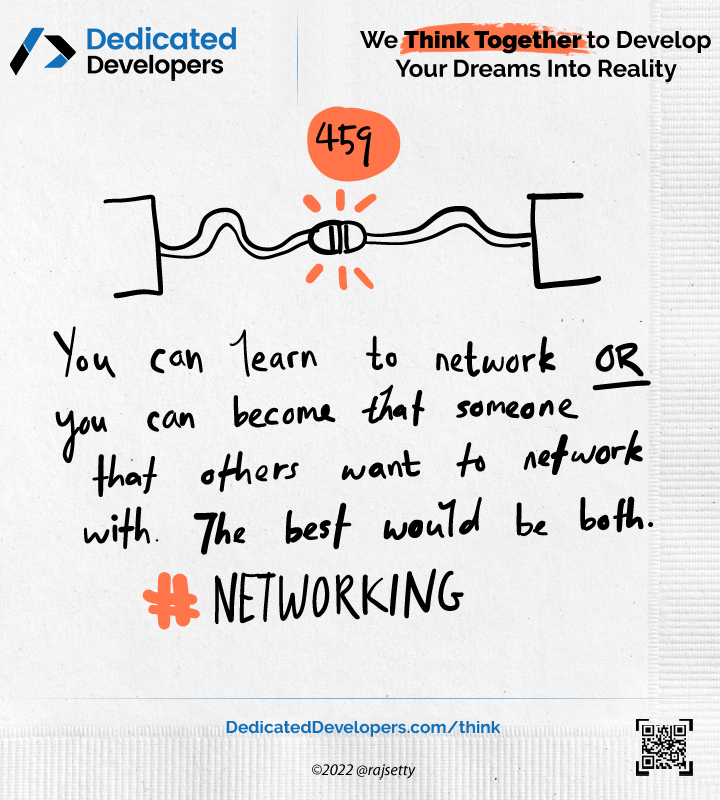 Dedicated
Developers
We Think Together to Develop
Your Dreams Into Reality
459
You can learn to network OR
you can become that someone
that others want to network
with. The best would be both.
# NETWORKING
DedicatedDevelopers.com/think
©2022 @rajsetty